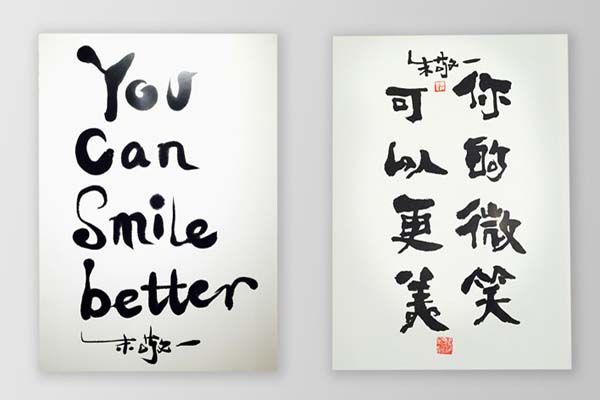 You
Can
Smile
better
朱敬一
你的微笑
可以更美
朱敬一